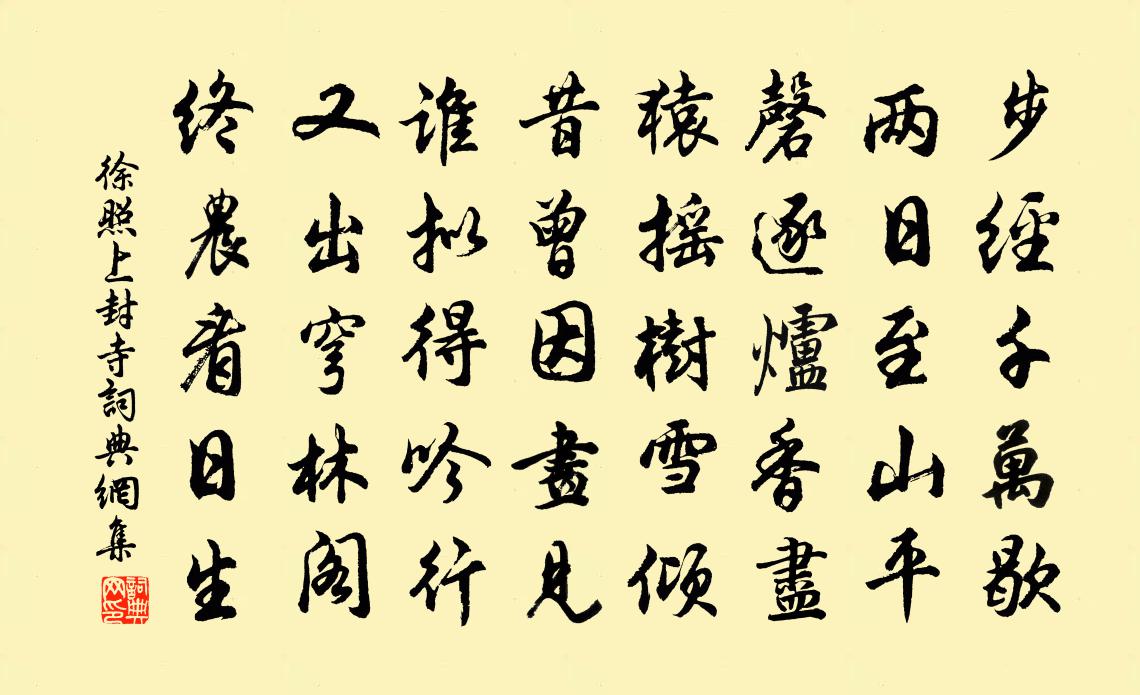 步經千萬歇
两日至山平
磬逐爐香盡
猿摇樹雪倾
昔曾因畫見
誰拟得吟行
又出穹林阁
终農看日生
徐照上封寺詞典網集
詞典网印